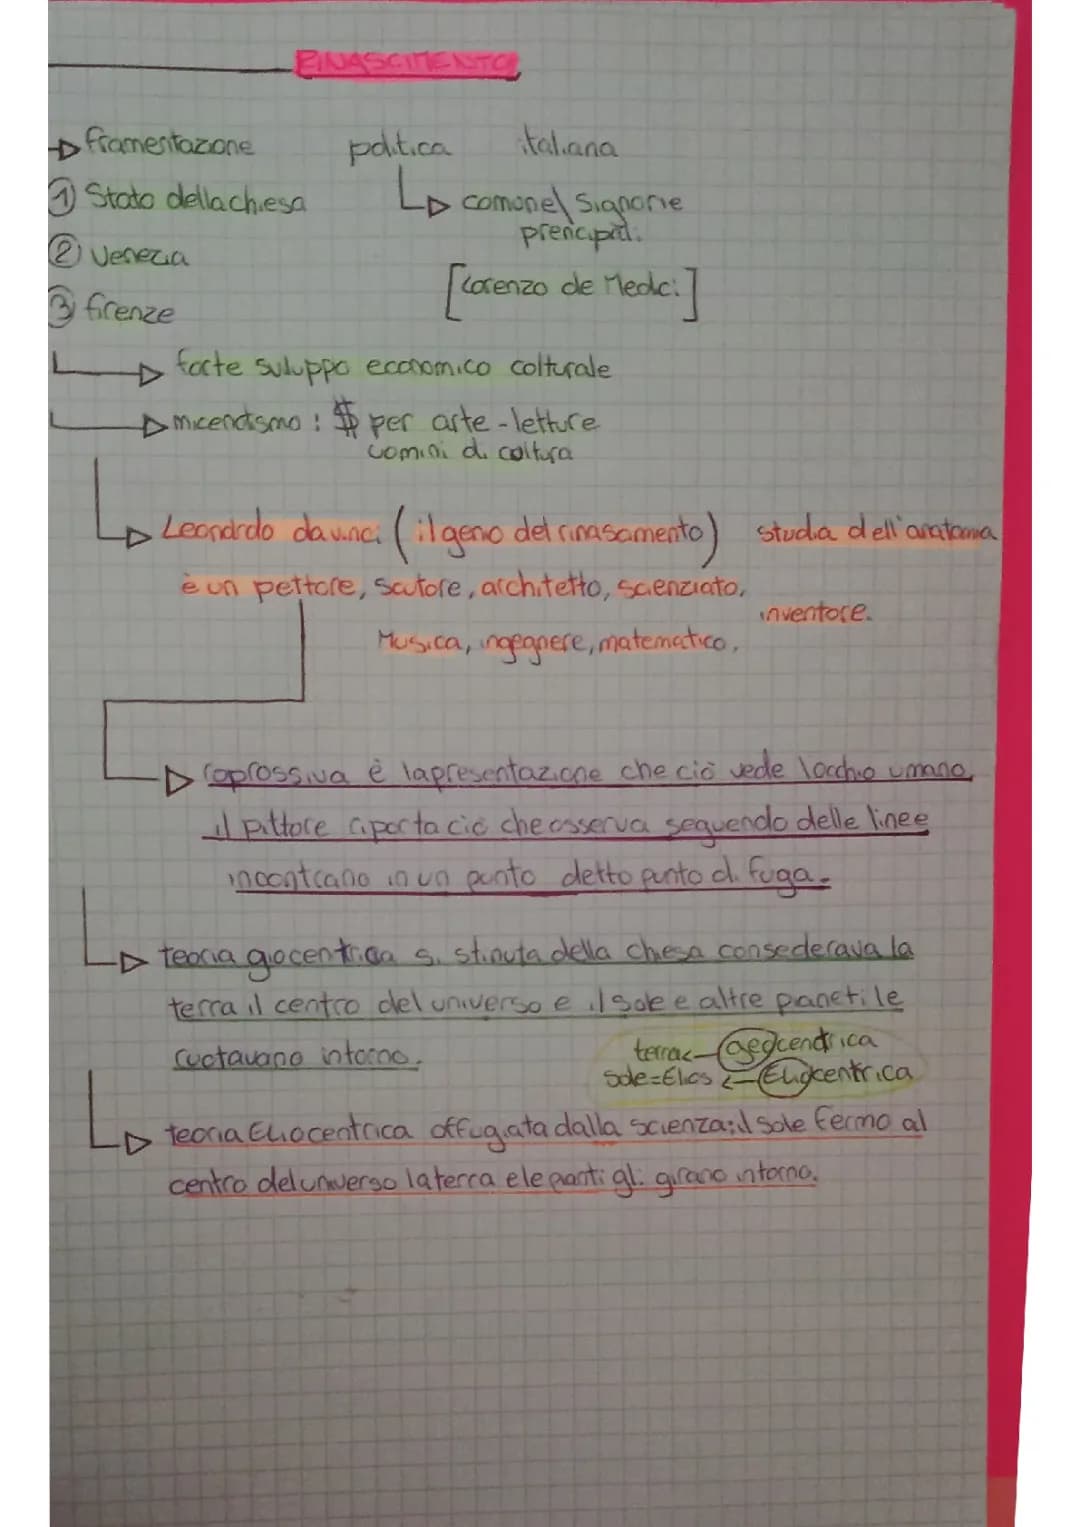 RINASCIMENTO
framentazione politica italiana
① Stato della chiesa
comune\ Signorie
prencipati
② Venezia
[Lorenzo de Medici]
③ firenze
forte sviluppo economico colturale
micenatismo : $ per arte - letture
uomini di coltura
Leonardo da vinci (il genio del rinascimento) studia dell'anatomia
è un pettore, scutore, architetto, scienziato,
inventore.
Musica, ingegnere, matematico.
è lapresentazione che ciò vede locchio umano
il pittore riporta ciò che osserva seguendo delle linee
incontrano in un punto detto punto di fuga.
teoria giocentrica stinuta della chiesa consederava la
terra il centro del universo e il sole e altre pianeti le
ruotavano intorno.
terra ← geocendrica
sole=Elios ← Eliocentrica
teoria Eliocentrica offugiata dalla scienza; il sole fermo al
centro del universo la terra e le pianti gli girano intorno.